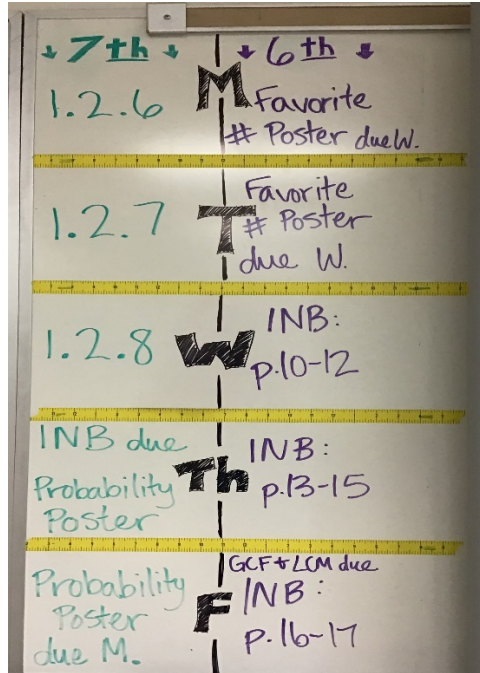 ↓ 7th ↓
↓ 6th ↓
1.2.6
M
Favorite
# Poster due W.
1.2.7
T
Favorite
# Poster
due W.
1.2.8
W
INB:
p.10-12
INB due
Probability
Poster
Th
INB:
p.13-15
Probability
Poster
due M.
F
GCF + LCM due
INB:
p.16-17